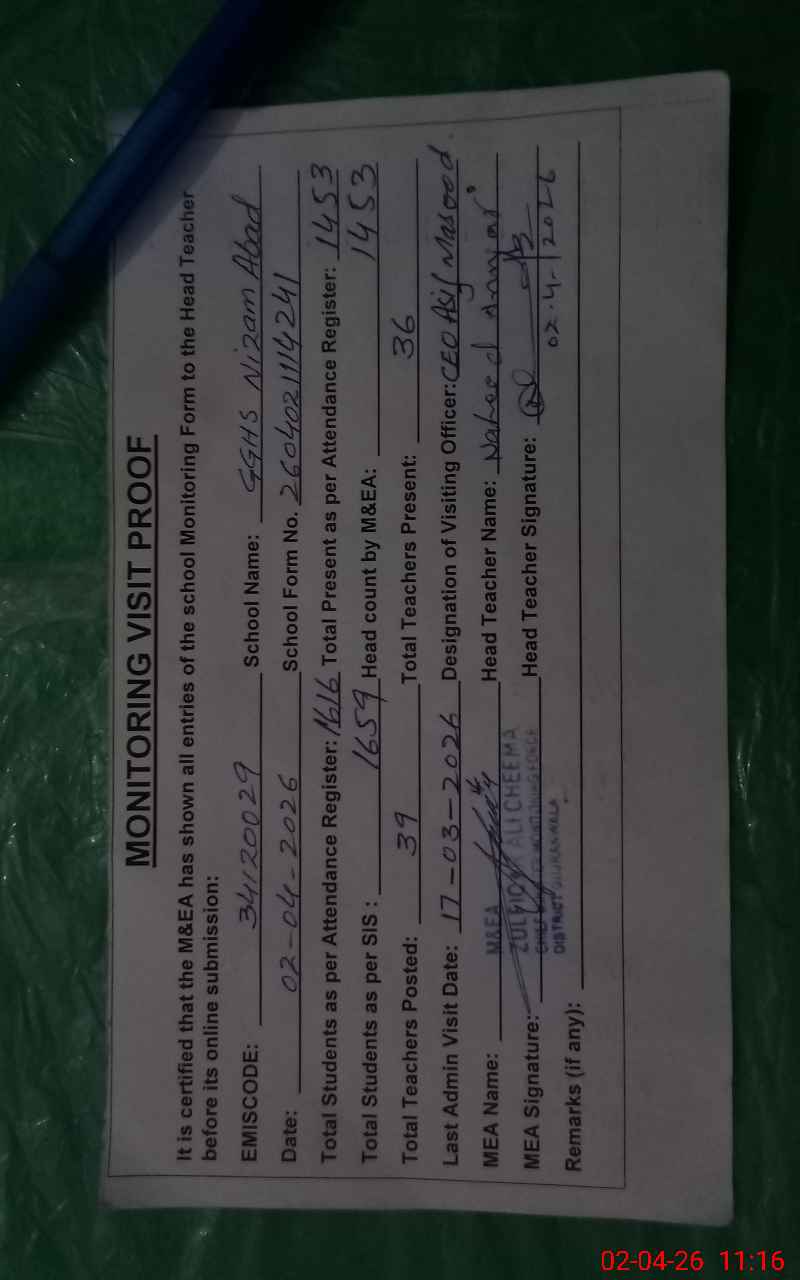 MONITORING VISIT PROOF
It is certified that the M&EA has shown all entries of the school Monitoring Form to the Head Teacher
before its online submission:
EMISCODE: 34120029 School Name: GGHS Nizam Abad
Date: 02-04-2026 School Form No. 2604021114241
Total Students as per Attendance Register: 1616 Total Present as per Attendance Register: 1453
Total Students as per SIS : 1659 Head count by M&EA: 1453
Total Teachers Posted: 39 Total Teachers Present: 36
Last Admin Visit Date: 17-03-2026 Designation of Visiting Officer: CEO Asif Masood.
MEA Name: M&EA Head Teacher Name: Naheed
ALI CHEEMA
MEA Signature: Head Teacher Signature:
DISTRICT GUJRANWALA
02.4.2026
Remarks (if any):
02-04-26 11:16